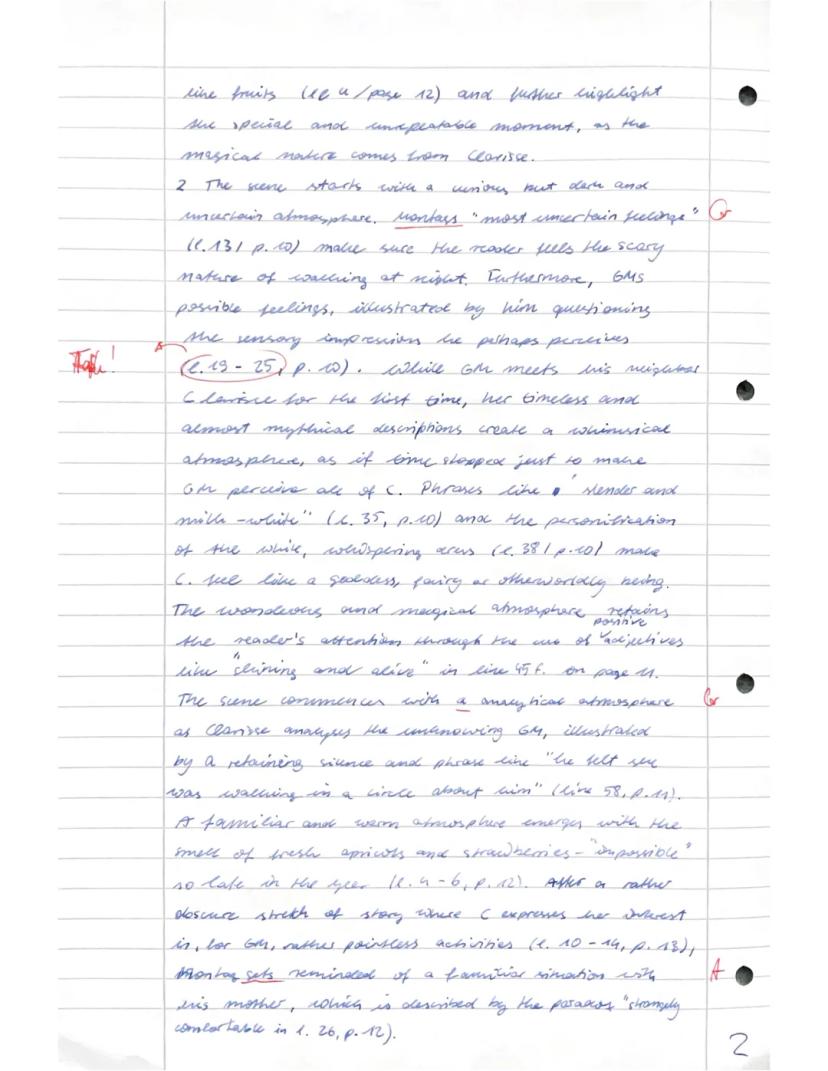 like fruits (ll 4/page 12) and further highlight
the special and unrepeatable moment, as the
magical nature comes from Clarisse.
2 The scene starts with a curious but dark and
uncertain atmosphere. Montags "most uncertain feelings" Gr
(l. 13/ p. 10) make sure the reader feels the scary
nature of walking at night. Furthermore, GMs
possible feelings, illustrated by him questioning
the sensory impression he perhaps perceives
(l. 19 - 25, p. 10). While GM meets his neighbour
Clarisse for the first time, her timeless and
almost mythical descriptions create a whimsical
atmosphere, as if time stopped just to make
GM perceive all of C. Phrases like "slender and
milk-white" (l. 35, p. 10) and the personification
of the white, whispering dress (l. 38/ p. 10) make
C. feel like a goddess, fairy or otherworldly being.
The wonderous and magical atmosphere retains
the reader's attention through the use of positive adjectives
like "shining and alive" in line 45 f. on page 11.
The scene commences with a analytical atmosphere Gr
as Clarisse analyses the unknowing GM, illustrated
by a retaining silence and phrase like "he felt she
was walking in a circle about him" (line 58, p. 11).
A familiar and warm atmosphere emerges with the
smell of fresh apricots and strawberries - "impossible"
so late in the year (l. 4-6, p. 12). After a rather
obscure stretch of story where C expresses her interest
in, for GM, rather pointless activities (l. 10 - 14, p. 13),
Montag gets reminded of a familiar situation with A
his mother, which is described by the paradox "strangely
comfortable in l. 26, p. 12).
2